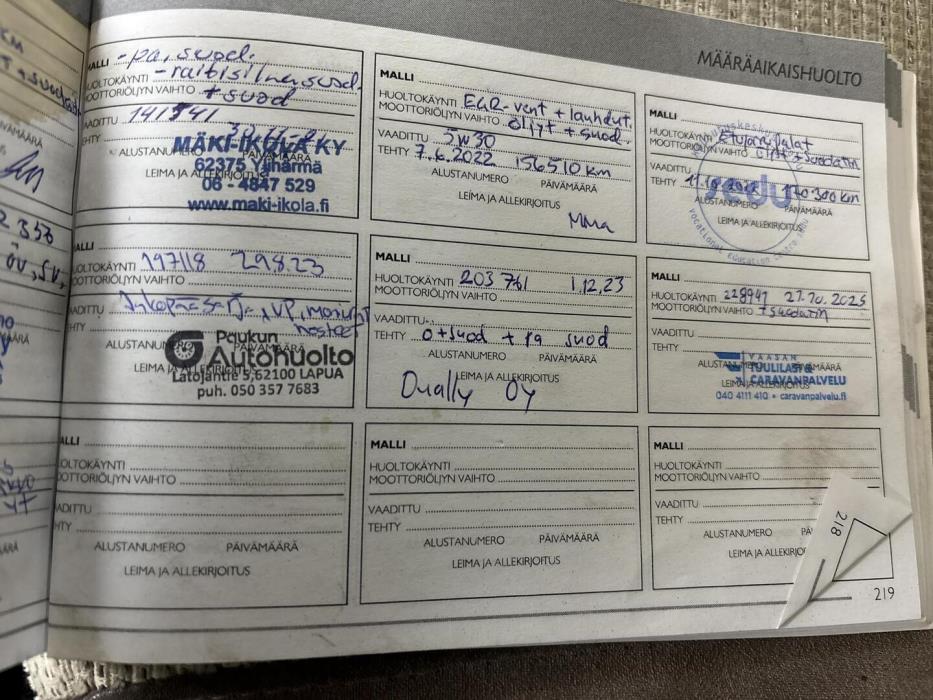 MÄÄRÄAIKAISHUOLTO
MALLI - pa, suod.
HUOLTOKÄYNTI - raitisilma suod.
MOOTTORIÖLJYN VAIHTO + suod
VAADITTU 141341
TEHTY
ALUSTANUMERO PÄIVÄMÄÄRÄ
MÄKI-IKOLA KY
62375 Ylihärmä
LEIMA JA ALLEKIRJOITUS
06 - 4847 529
www.maki-ikola.fi
MALLI
HUOLTOKÄYNTI EGR-vent + lauhdut.
MOOTTORIÖLJYN VAIHTO öljyt + suod.
VAADITTU 5W30
TEHTY 7.6.2022 156510 km
ALUSTANUMERO PÄIVÄMÄÄRÄ
LEIMA JA ALLEKIRJOITUS
MALLI
HUOLTOKÄYNTI Etujarrupalat
MOOTTORIÖLJYN VAIHTO öljyt + suodatin
VAADITTU
TEHTY 170300 km
sedu
Vocational Education Centre Sedu
ALUSTANUMERO PÄIVÄMÄÄRÄ
LEIMA JA ALLEKIRJOITUS
MALLI
HUOLTOKÄYNTI 197118 29.8.23
MOOTTORIÖLJYN VAIHTO
VAADITTU Jakopää
ALUSTANUMERO PÄIVÄMÄÄRÄ
LEIMA JA ALLEKIRJOITUS
Paukun
Autohuolto
Latojantie 5, 62100 LAPUA
puh. 050 357 7683
MALLI
HUOLTOKÄYNTI 203 761 1.12.23
MOOTTORIÖLJYN VAIHTO
VAADITTU
TEHTY ö + suod + ra suod
ALUSTANUMERO PÄIVÄMÄÄRÄ
LEIMA JA ALLEKIRJOITUS
Dually OY
MALLI
HUOLTOKÄYNTI 228941 27.10.2025
MOOTTORIÖLJYN VAIHTO + suodatin
VAADITTU
TEHTY
ALUSTANUMERO PÄIVÄMÄÄRÄ
LEIMA JA ALLEKIRJOITUS
VAASAN
TUULILASI &
CARAVANPALVELU
040 4111 410 • caravanpalvelu.fi
MALLI
HUOLTOKÄYNTI
MOOTTORIÖLJYN VAIHTO
VAADITTU
TEHTY
ALUSTANUMERO PÄIVÄMÄÄRÄ
LEIMA JA ALLEKIRJOITUS
MALLI
HUOLTOKÄYNTI
MOOTTORIÖLJYN VAIHTO
VAADITTU
TEHTY
ALUSTANUMERO PÄIVÄMÄÄRÄ
LEIMA JA ALLEKIRJOITUS
MALLI
HUOLTOKÄYNTI
MOOTTORIÖLJYN VAIHTO
VAADITTU
TEHTY
ALUSTANUMERO
LEIMA JA
218
219